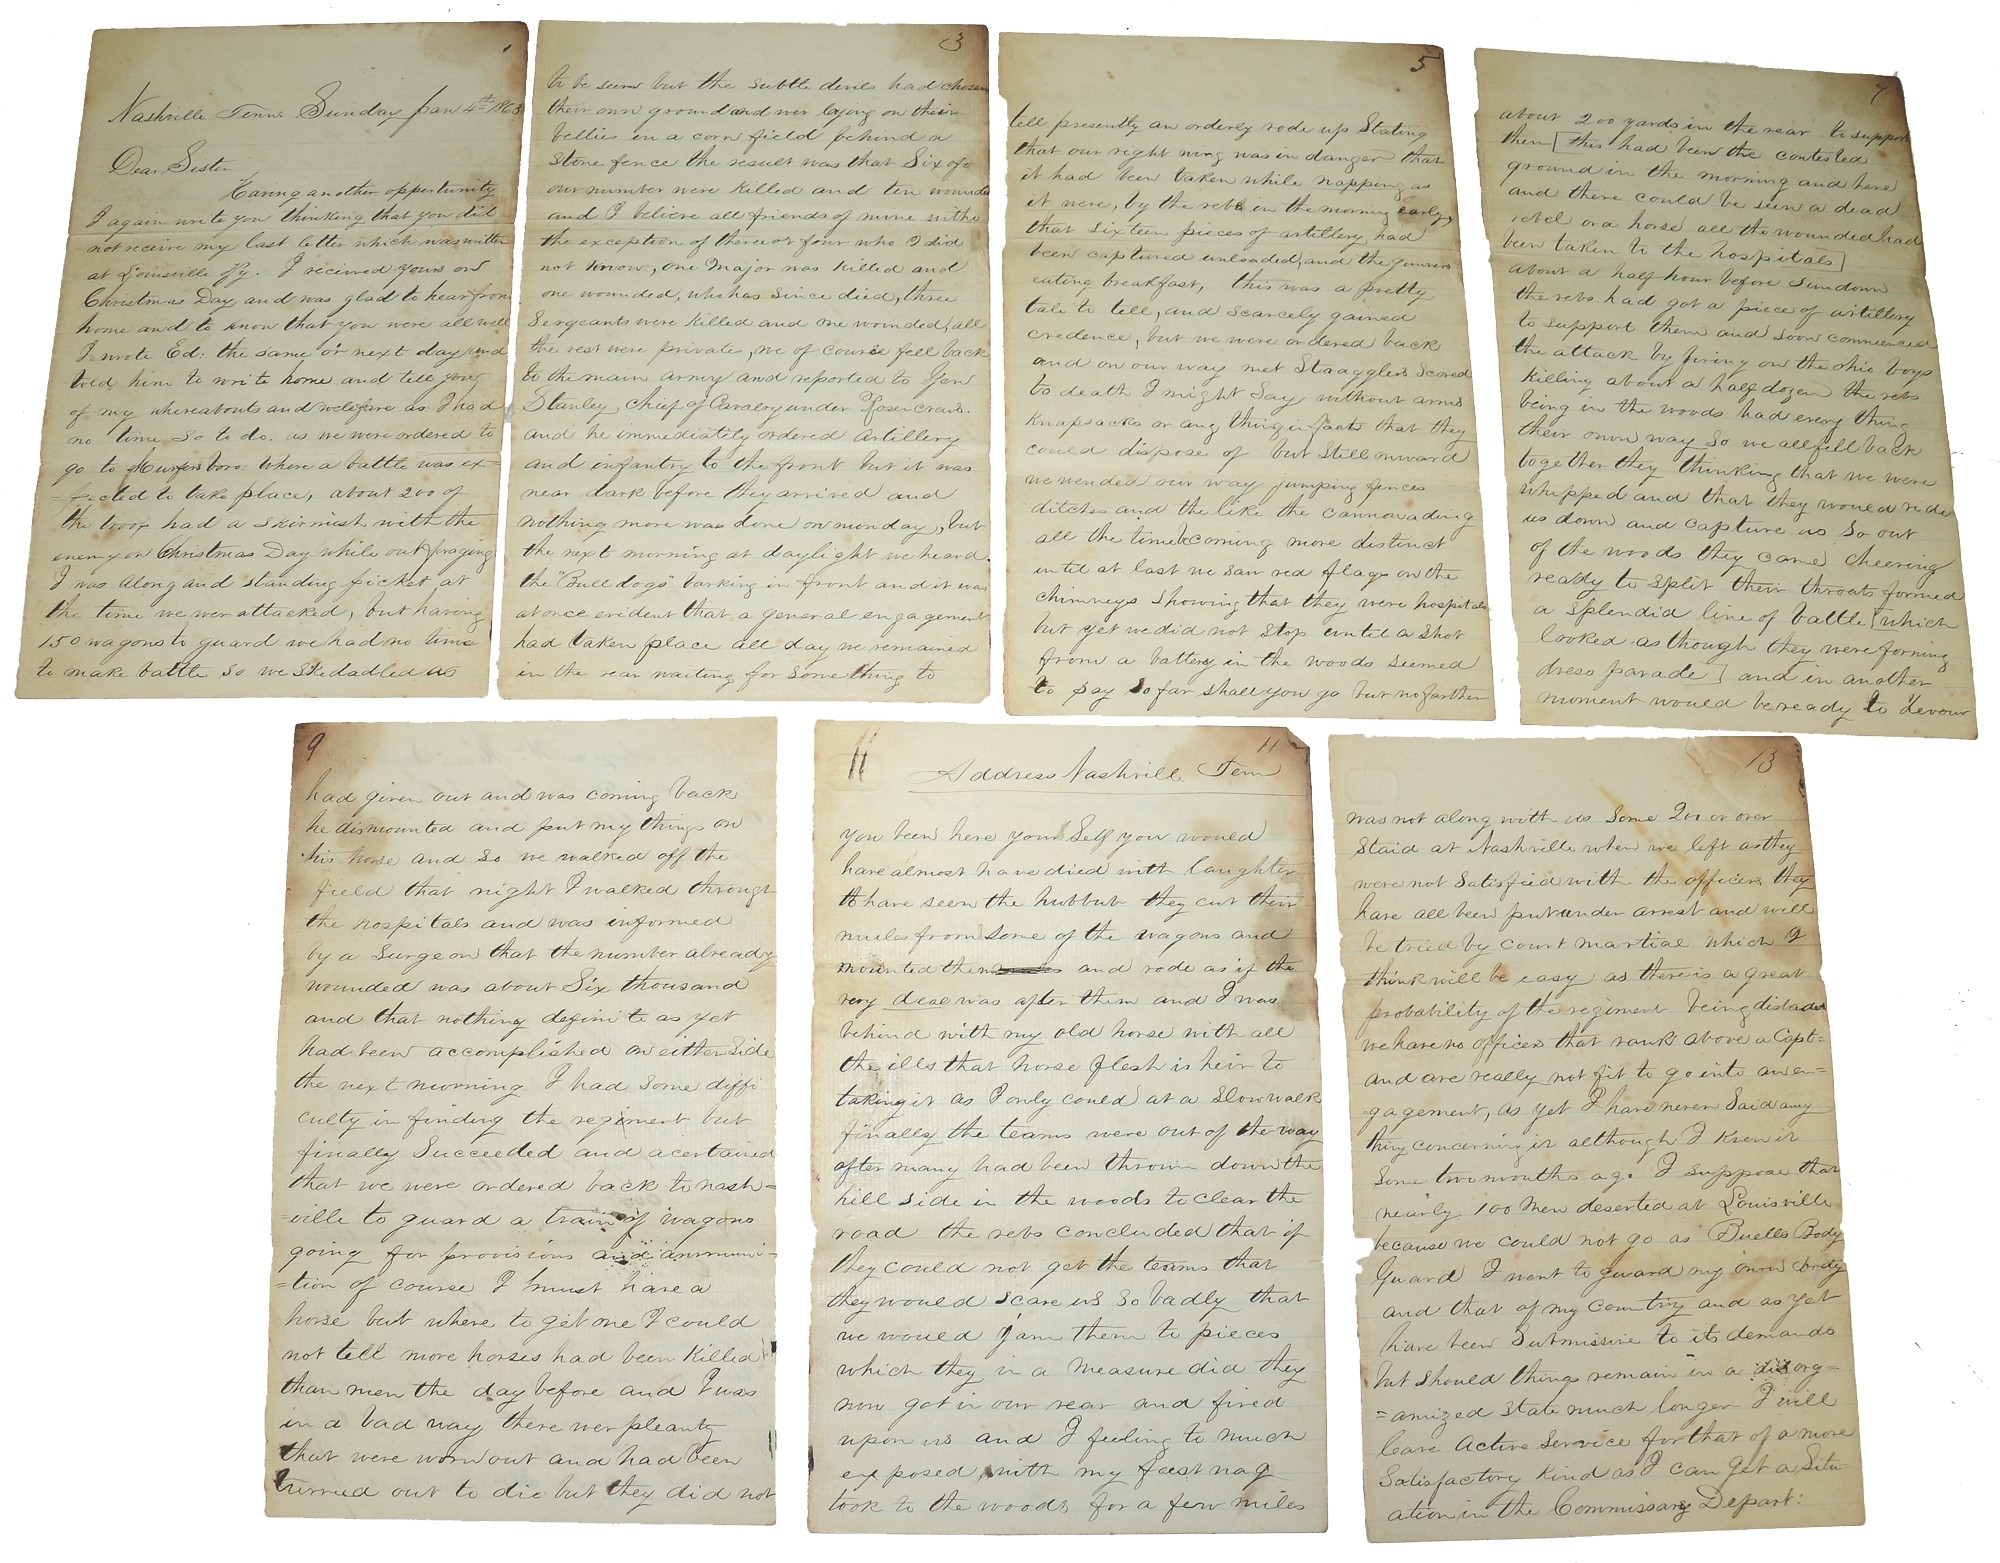 1
Nashville Tenn. Sunday Jan 4th 1863
Dear Sister
Having another opportunity
I again write you thinking that you did
not receive my last letter which was written
at Louisville Ky. I received yours on
Christmas Day and was glad to hear from
home and to know that you were all well
I wrote Ed: the same or next day and
told him to write home and tell you
of my whereabouts and welefare as I had
no time so to do. as we were ordered to
go to Murfersboro. where a battle was ex=
=fected to take place, about 200 of
the troop had a skirmish with the
enemy on Christmas Day while out fraging
I was along and standing picket at
the time we wer attacked, but having
150 wagons to guard we had no time
to make battle so we skedadled as
3
to be seen but the subtle devils had chosen
their own ground and wer lying on their
bellies in a corn field behind a
stone fence the result was that Six of
our number were killed and ten wounded
and I believe all friends of mine withe
the exception of three or four who I did
not know, one Major was killed and
one wounded, who has since died, three
Sergeants were killed and one wounded, all
the rest were private, we of course fell back
to the main army and reported to Gen
Stanley, Chief of Cavalry under Rosencrans.
and he immediately ordered artillery
and infantry to the front but it was
near dark before they arrived and
nothing more was done on monday, but
the next morning at daylight we heard
the "Bull dogs" barking in front and it was
at once evident that a general engagement
had taken place all day we remained
in the rear waiting for some thing to
5
tell presently an orderly rode up Stating
that our right wing was in danger that
it had been taken while napping as
it were, by the rebs in the morning early,
that sixteen pieces of artillery had
been captured unloaded, and the gunners
eating breakfast, this was a pretty
tale to tell, and scarcely gained
credence, but we were ordered back
and on our way met Stragglers Scored
to death I might say without arms
knapsacks or any thing in fact that they
could dispose of but still onward
we wended our way jumping fences
ditches and the like the cannonading
all the time coming more distinct
until at last we saw red flags on the
chimneys showing that they were hospitals
but yet we did not stop until a shot
from a battery in the woods seemed
to say so far shall you go but no farther
7
about 200 yards in the rear to support
them [this had been the contested
ground in the morning and here
and there could be seen a dead
rebel or a horse all the wounded had
been taken to the hospitals]
about a half hour before sundown
the rebs had got a piece of artillery
to support them and soon commenced
the attack by firing on the ohio boys
killing about a half dozen the rebs
being in the woods had every thing
their own way so we all fell back
together they thinking that we were
whipped and that they would ride
us down and capture us so out
of the woods they came cheering
ready to split their throats formed
a splendid line of battle [which
looked as though they were forming
dress parade] and in another
moment would be ready to devour
9
had given out and was coming back
he dismounted and put my things on
his horse and so we walked off the
field that night I walked through
the hospitals and was informed
by a Surgeon that the number already
wounded was about Six thousand
and that nothing definite as yet
had been accomplished on either side
the next morning I had some diffi
culty in finding the regiment but
finally succeeded and acertained
that we were ordered back to nash=
=ville to guard a train of wagons
going for provisions and ammuni=
=tion of course I must have a
horse but where to get one I could
not tell more horses had been killed
than men the day before and I was
in a bad way there wer pleanty
that were worn out and had been
turned out to die but they did not
11 11
Address Nashville Tenn
you been here your self you would
have almost have died with laughter
to have seen the hubbub they cut their
mules from some of the wagons and
mounted them and rode as if the
very deal was after them and I was
behind with my old horse with all
the ills that horse flesh is heir to
taking it as I only could at a slow walk
finally the teams were out of the way
after many had been thrown down the
hill side in the woods to clear the
road the rebs concluded that if
they could not get the teams that
they would scare us so badly that
we would jam them to pieces
which they in a measure did they
now got in our rear and fired
upon us and I feeling to much
exposed with my fast nag
took to the woods for a few miles
13
was not along with us Some 200 or over
Staid at Nashville when we left as they
were not Satisfeid with the officers they
have all been put under arrest and will
be tried by court martial which I
think will be easy as there is a great
probability of the regiment being disbaded
we have no officers that rank above a Capt=
and are really not fit to go into an en=
=gagement, as yet I have never Said any
thing concerning it although I knew it
Some two months ago. I suppose that
nearly 100 men deserted at Louisville
because we could not go as Buells Body
Guard I went to guard my own body
and that of my Country and as yet
have been Submissive to its demands
but should things remain in a disorg=
=anized state much longer I will
leave Active Service for that of a more
Satisfactory kind as I can get a Situ
ation in the Commissary Depart: